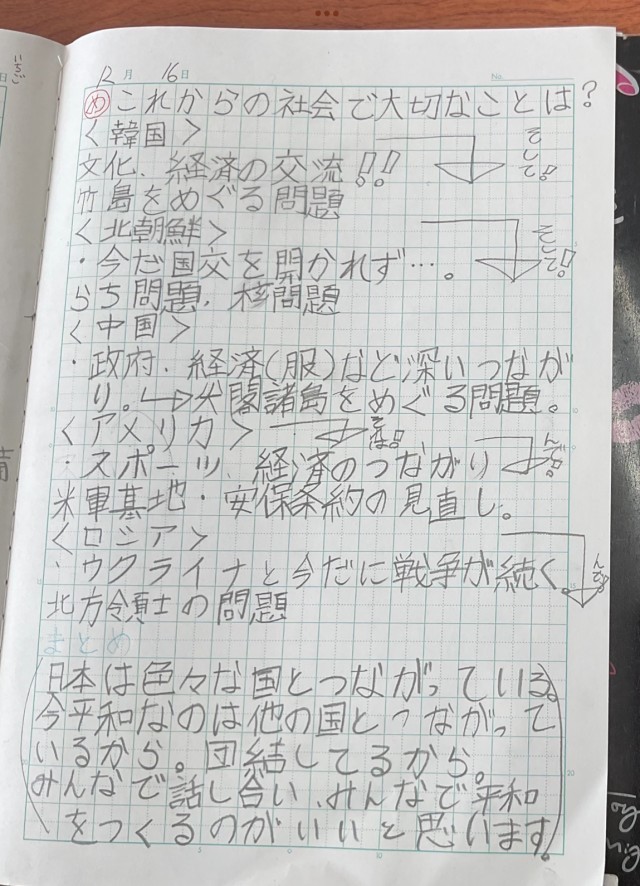 いちご
12月 16日 No.
め これからの社会で大切なことは?
<韓国>
そして!!
文化、経済の交流!!
竹島をめぐる問題
<北朝鮮>
そして!!
・今だ国交を開かれず…。
らち問題、核問題
<中国>
・政府、経済(服)など深いつなが
り。→尖閣諸島をめぐる問題。
<アメリカ>
・スポーツ、経済のつながり
米軍基地・安保条約の見直し。
<ロシア>
・ウクライナと今だに戦争が続く。
北方領土の問題
まとめ
日本は色々な国とつながっている。
今平和なのは他の国とつながって
いるから。団結してるから。
みんなで話し合い、みんなで平和
をつくるのがいいと思います!